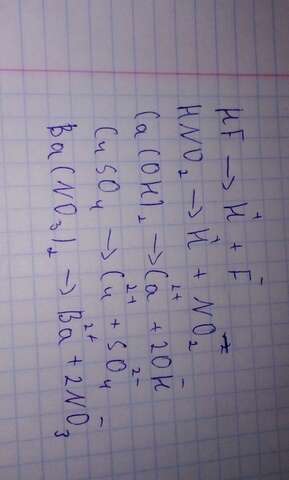 HF → H⁺ + F⁻
HNO₂ → H⁺ + NO₂⁻
Ca(OH)₂ → Ca²⁺ + 2OH⁻
CuSO₄ → Cu²⁺ + SO₄²⁻
Ba(NO₃)₂ → Ba²⁺ + 2NO₃⁻